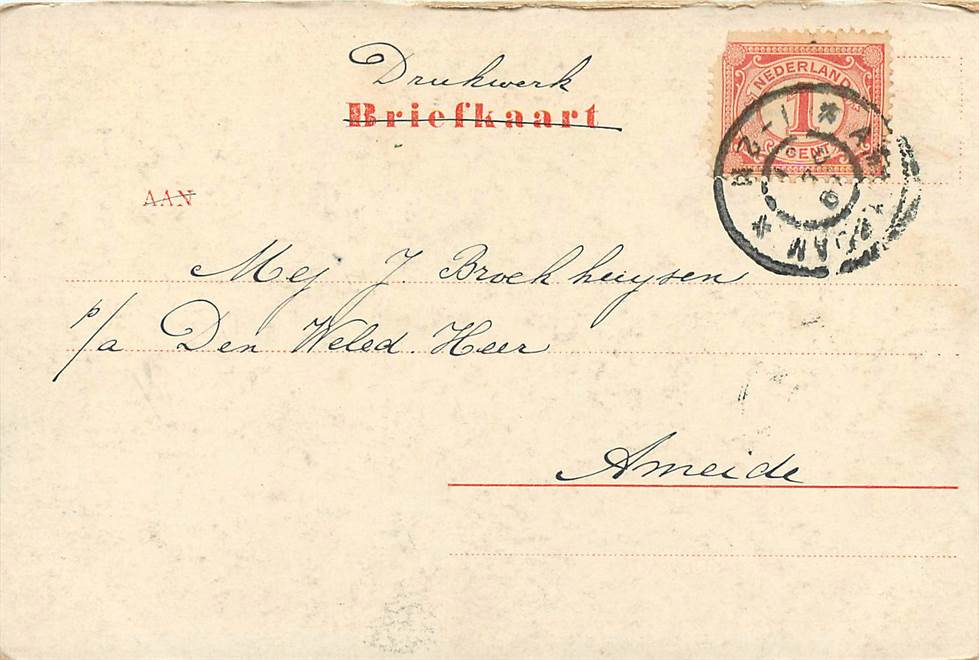 Drukwerk
Briefkaart
NEDERLAND
1
CENT
AAN
Mej J. Broekhuysen
p/a Den Weled. Heer
Ameide